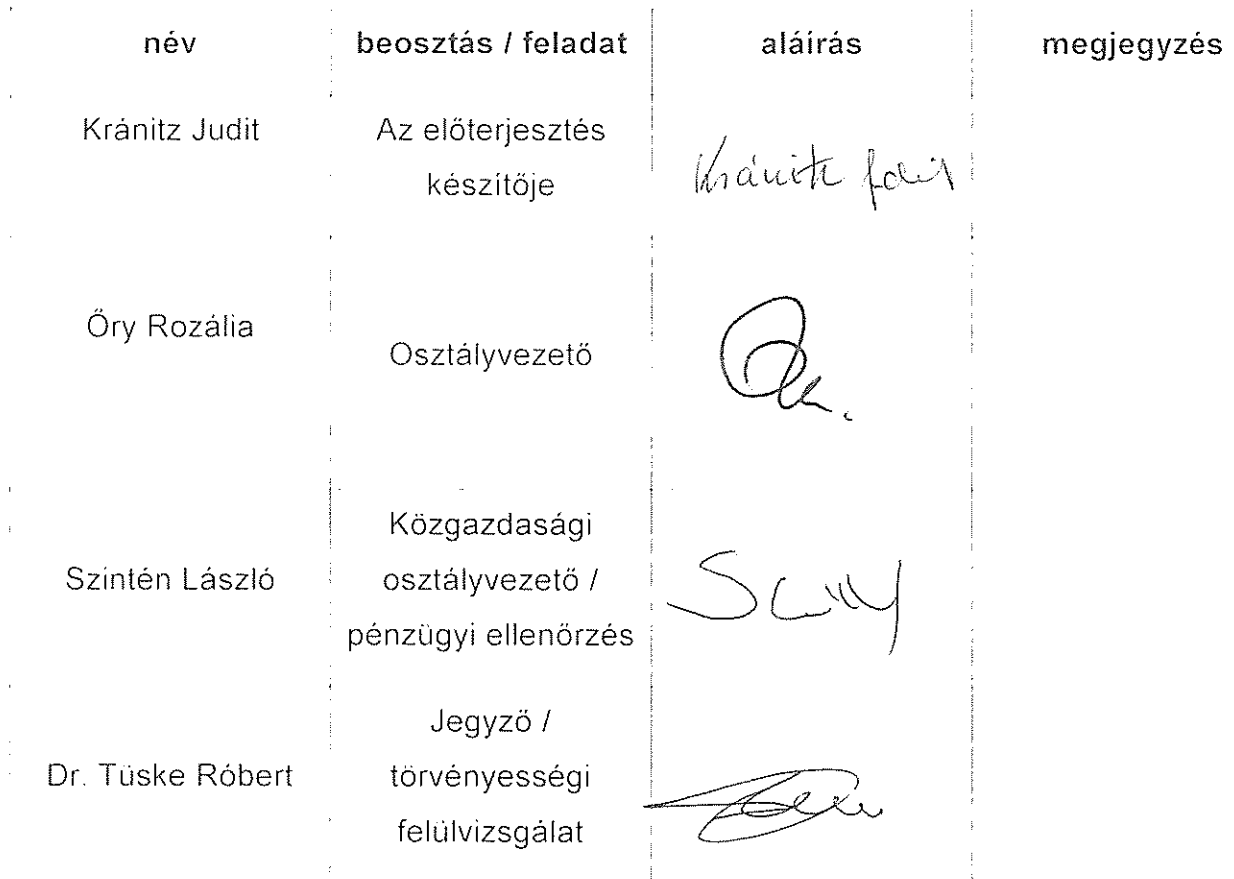 név beosztás / feladat aláírás megjegyzés
Kránitz Judit Az előterjesztés
készítője
Kránitz Judit
Őry Rozália
Osztályvezető
Közgazdasági
Szintén László osztályvezető /
pénzügyi ellenőrzés
Jegyző /
Dr. Tüske Róbert törvényességi
felülvizsgálat